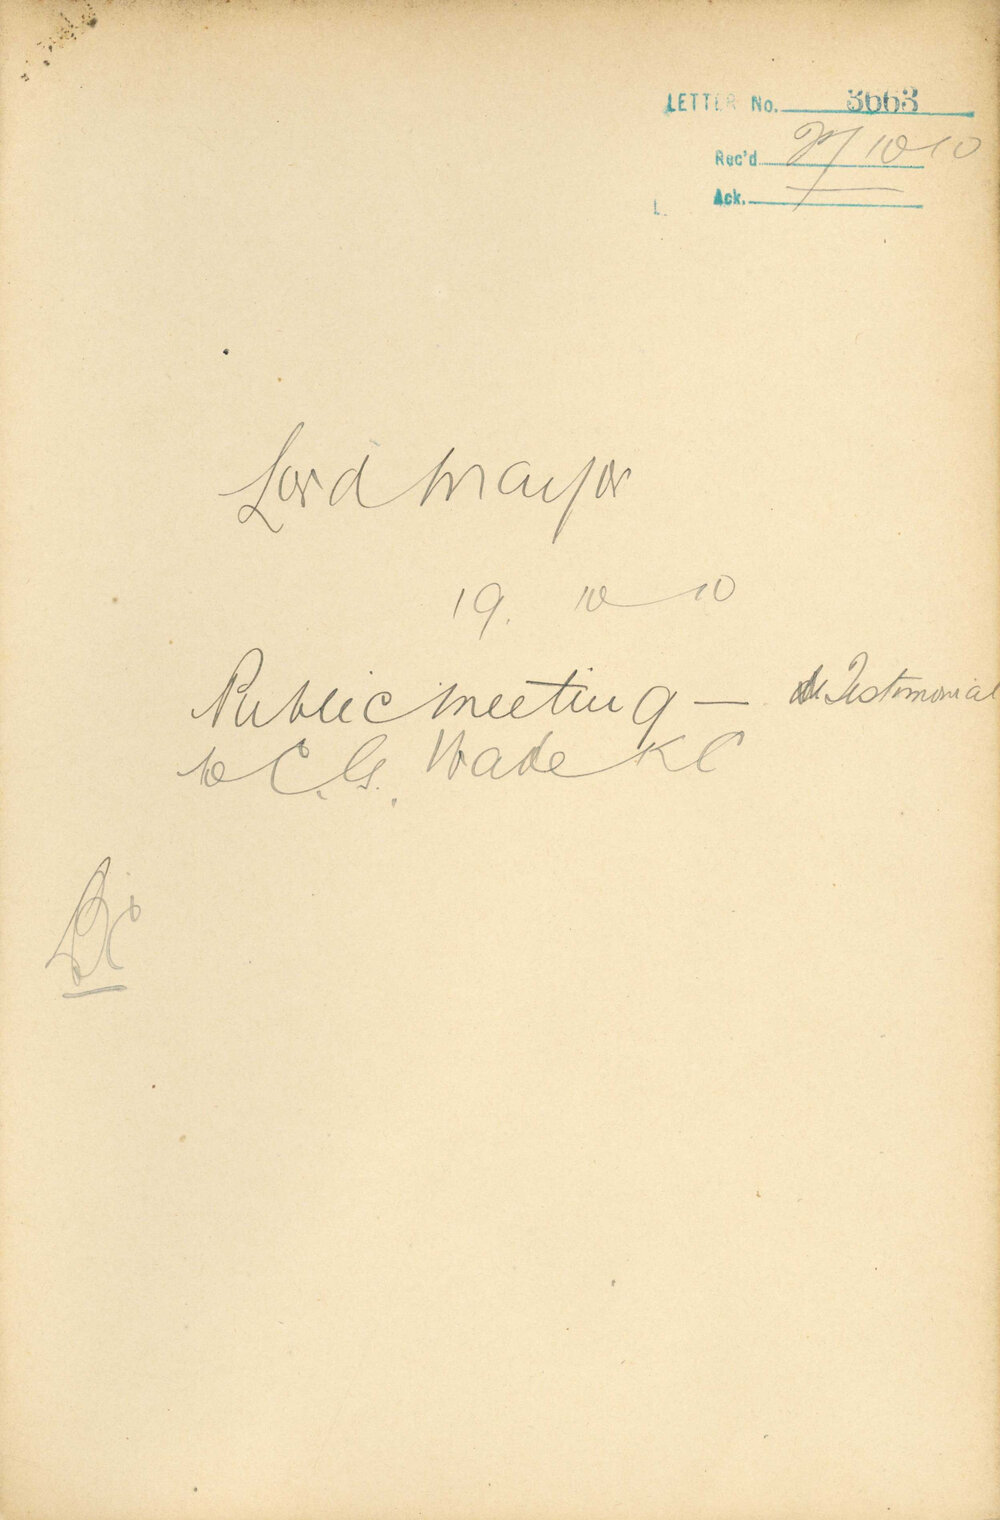 LETTER No. 3663
Rec'd 27/10 10
Ack.
Lord Mayor
19. 10 10
Public meeting — Testimonial
to C. G. Wade KC